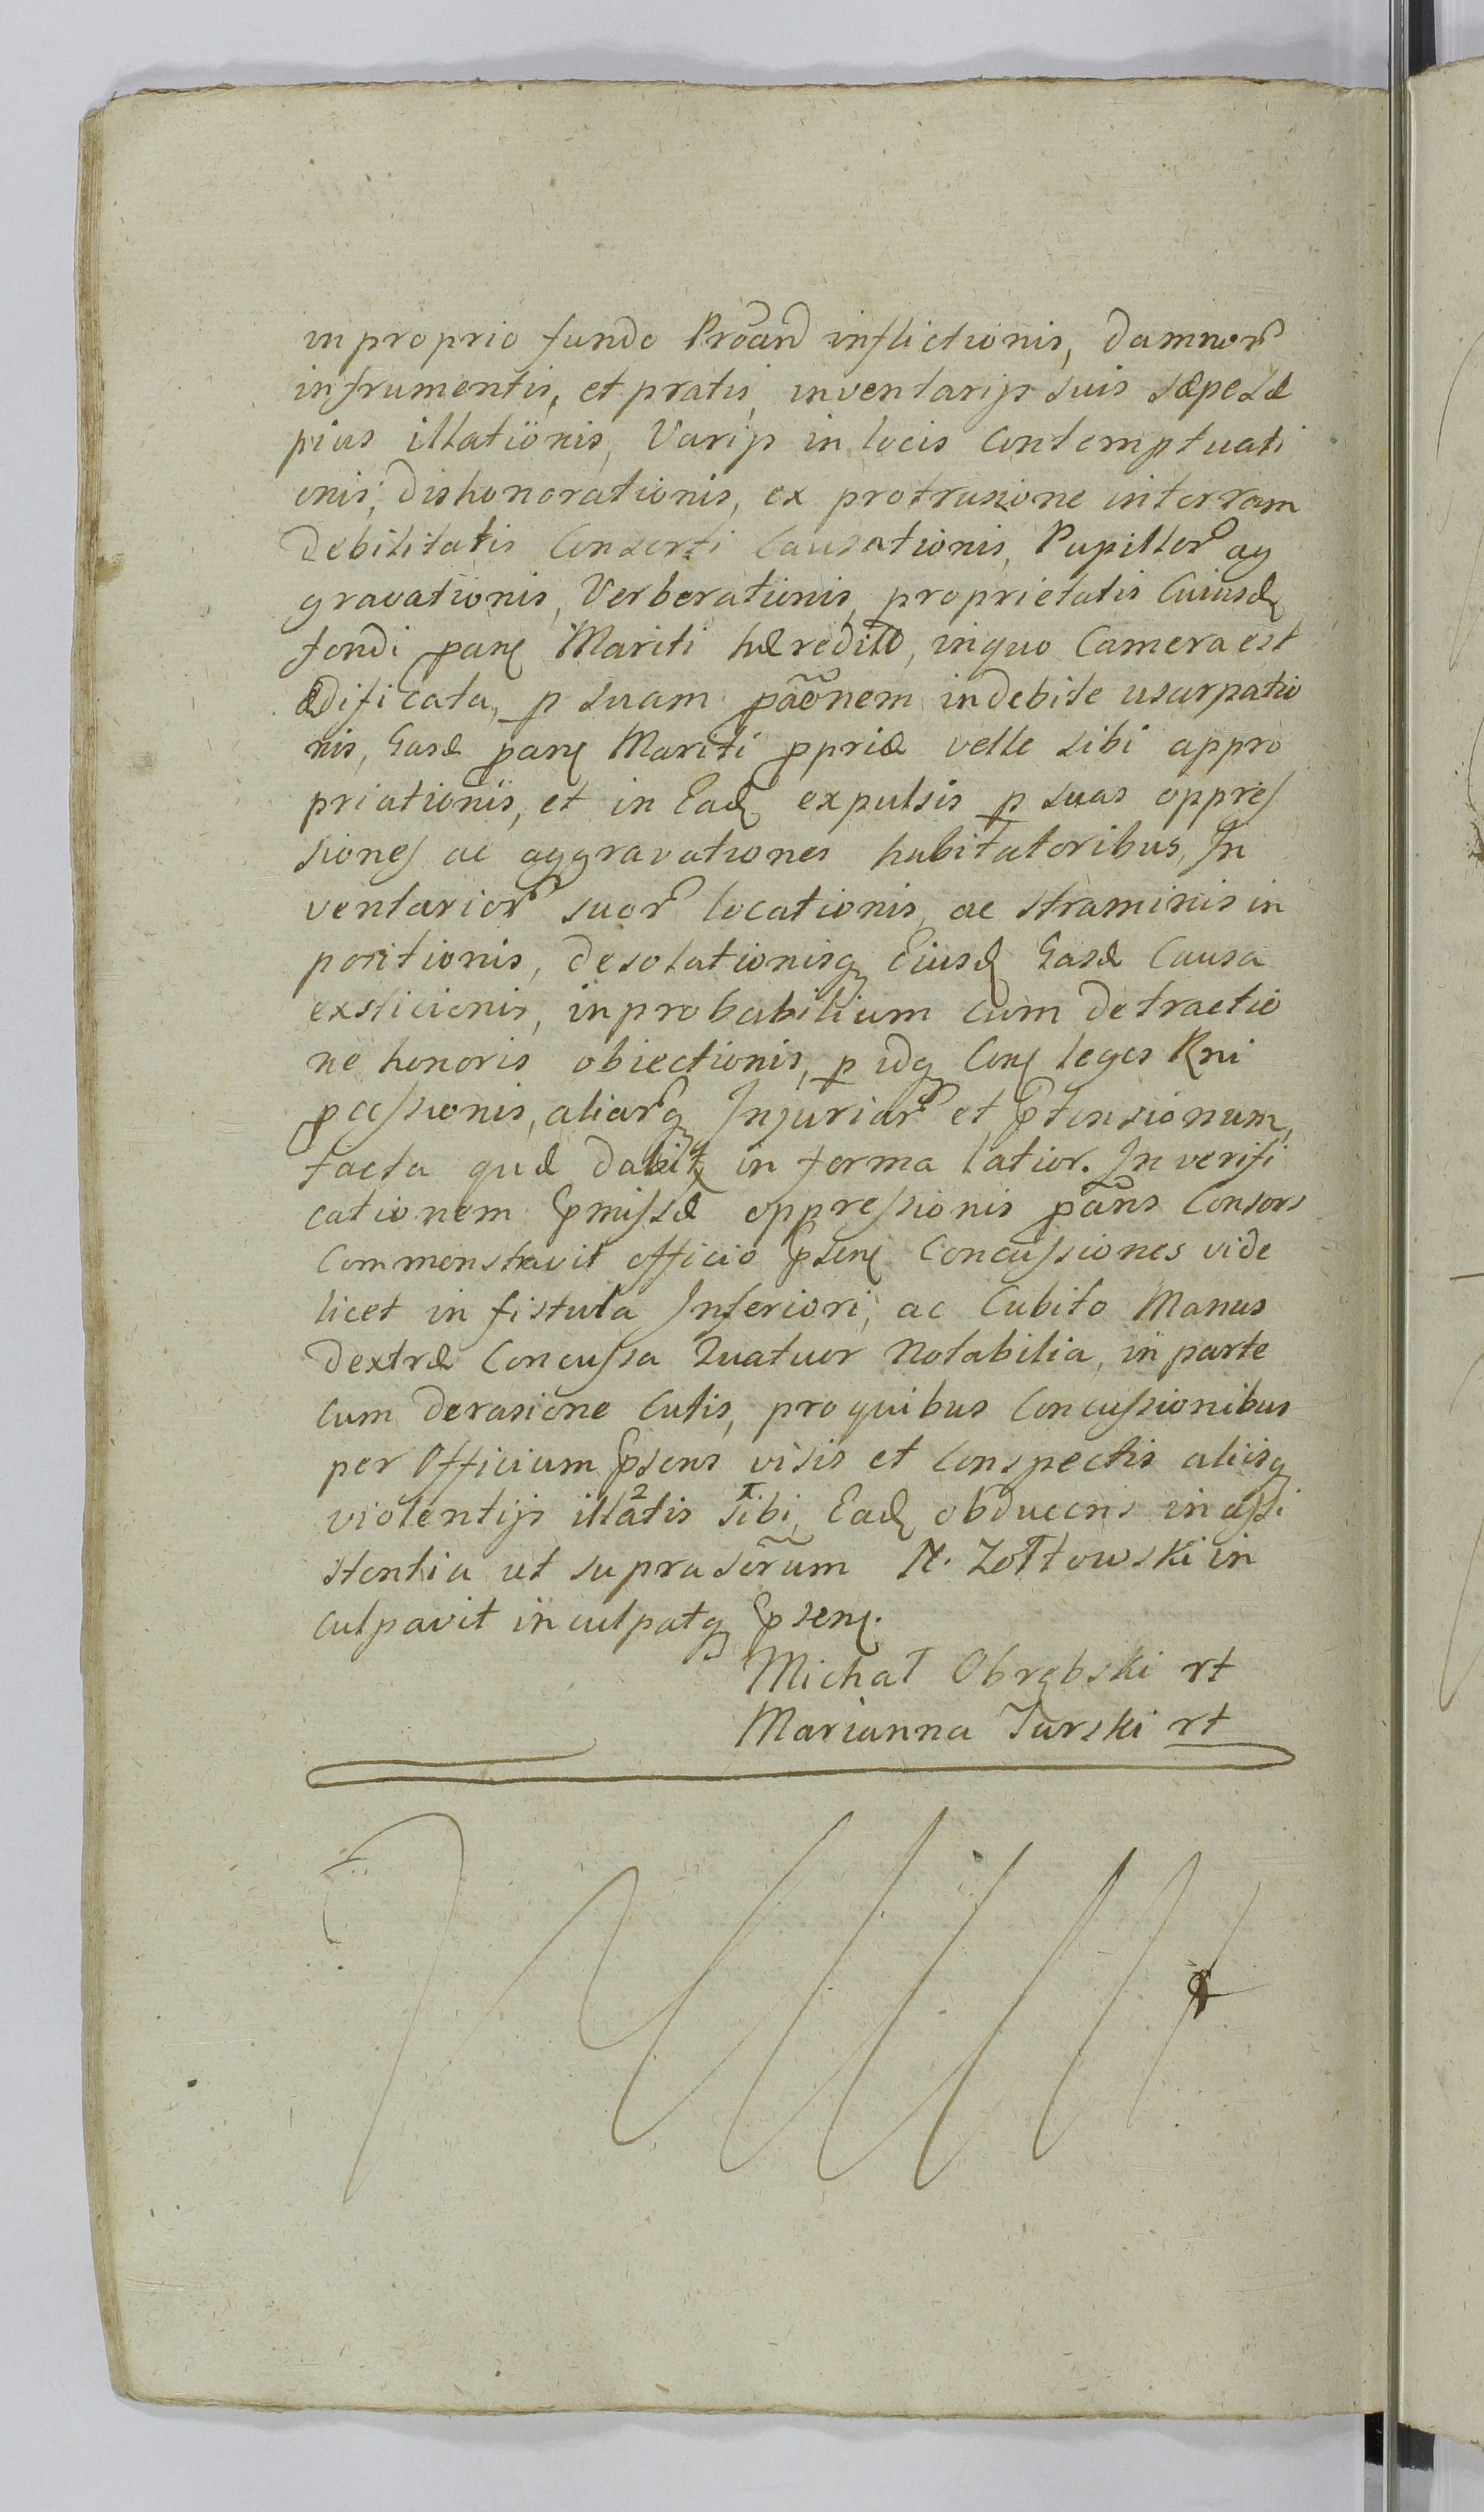 in proprio fundo Proãn inflictionis, damnor
in frumentis, et pratis, inventarijs suis sæpe sæ
pius illationis, Varijs in locis Contemptuati
onis, dishonorationis, ex protrusione in terram
debilitatis Consorti Causationis, Pupillor ag
gravationis, Verberationis, proprietatis Cuiusd
fondi pan Mariti hæredit, in quo Camera est
ædificata, p suam pãonem indebite usurpatio
nis, Easd pan Mariti ppriæ velle sibi appro
priationis, et in Ead expulsis p suas oppres
siones ac aggravationes habitatoribus, In
ventarior suor locationis, ac straminis in
positionis, desolationisq Eiusd Easd Causa
exsticionis, inprobabilium cum detractio
ne honoris obiectionis, p idq Con leges Rni
pcessionis, aliarq Injuriar et ptensionum,
facta quæ dabit in forma latior. In verifi
cationem pmissæ oppressionis pãns Consors
Commonstravit officio psen Concussiones vide
licet in fistula Inferiori, ac Cubito Manus
dextræ Concussa Quatuor Notabilia, in parte
cum derasione Cutis, pro quibus Concussionibus
per Officium psens visis et Conspectis aliisq
violentijs illatis sibi, Ead obducens in assi
stentia ut supra serũm M. Zołtowski in
culpavit inculpatq psen.
Michał Obrębski rt
Marianna Turski rt